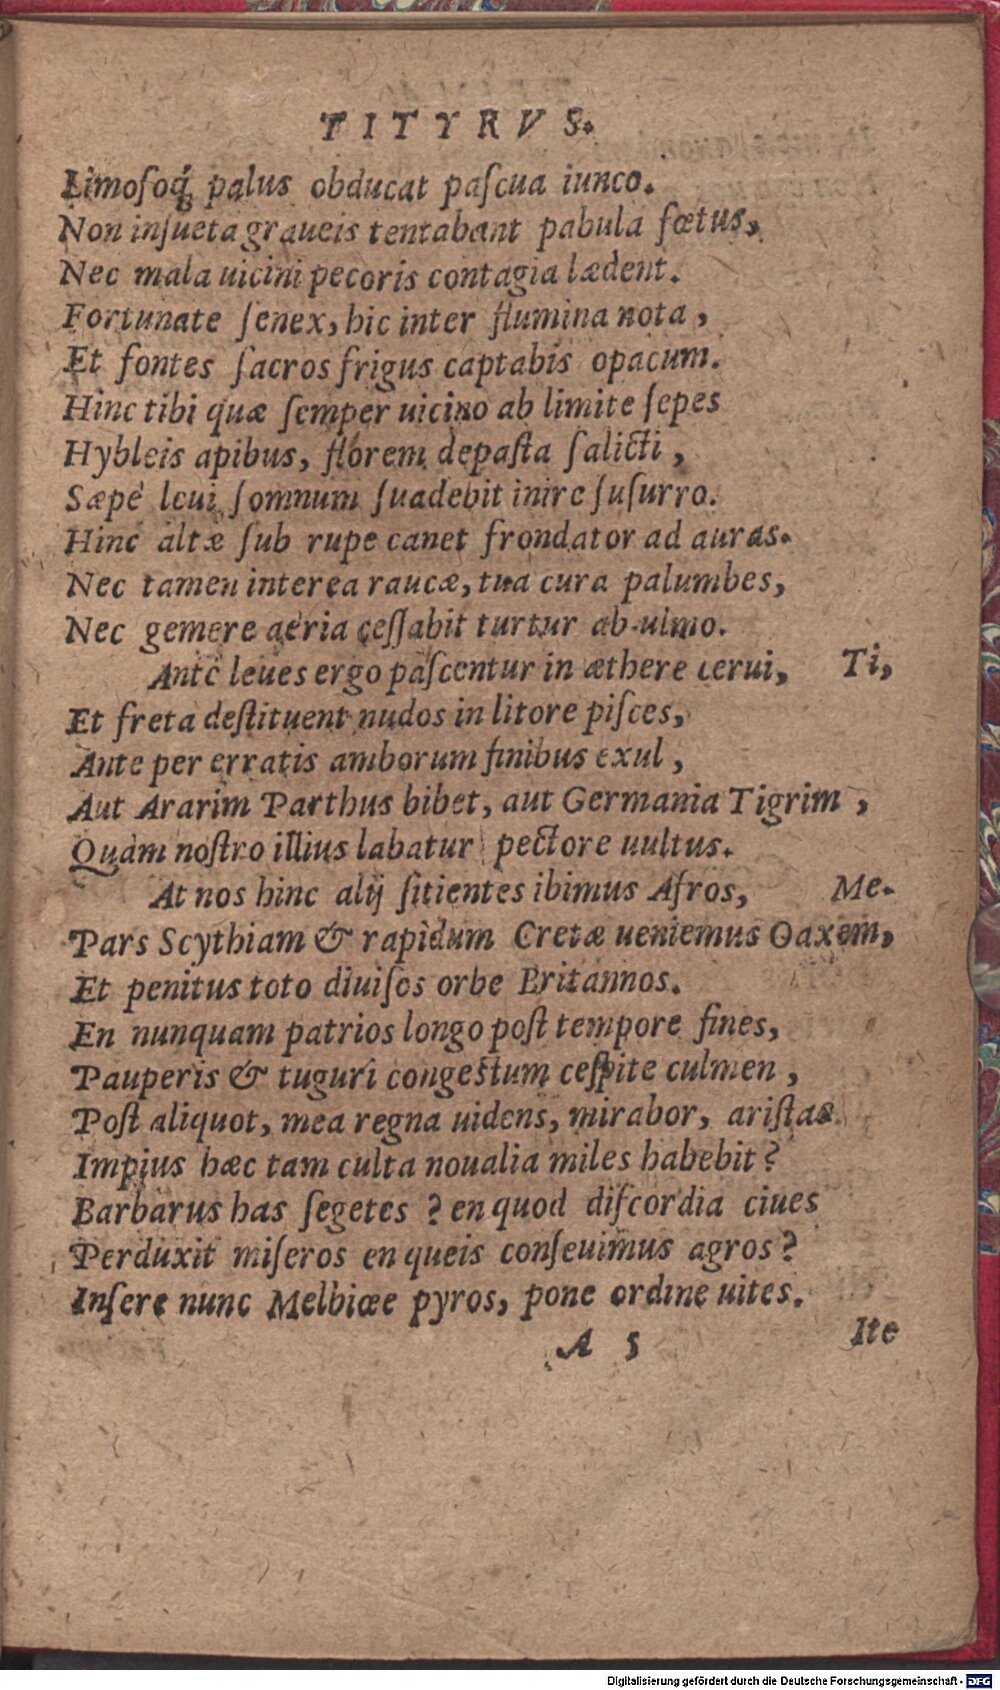 TITYRVS.
Limoſoq́; palus obducat paſcua iunco.
Non inſueta graueis tentabant pabula fœtus,
Nec mala uicini pecoris contagia lædent.
Fortunate ſenex, hic inter flumina nota,
Et fontes ſacros frigus captabis opacum.
Hinc tibi quæ ſemper uicino ab limite ſepes
Hybleis apibus, florem depaſta ſalicti,
Sæpe leui ſomnum ſuadebit inire ſuſurro.
Hinc altæ ſub rupe canet frondator ad auras.
Nec tamen interea raucæ, tua cura palumbes,
Nec gemere aëria ceſſabit turtur ab ulmo.
Antè leues ergo paſcentur in æthere cerui, Ti,
Et freta deſtituent nudos in litore piſces,
Ante per erratis amborum finibus exul,
Aut Ararim Parthus bibet, aut Germania Tigrim,
Quàm noſtro illius labatur pectore uultus.
At nos hinc alij ſitientes ibimus Afros, Me.
Pars Scythiam & rapidum Cretæ ueniemus Oaxem,
Et penitus toto diuiſos orbe Britannos.
En nunquam patrios longo poſt tempore fines,
Pauperis & tugurî congeſtum ceſpite culmen,
Poſt aliquot, mea regna uidens, mirabor, ariſtas.
Impius hæc tam culta noualia miles habebit?
Barbarus has ſegetes? en quod diſcordia ciues
Perduxit miſeros en queis conſeuimus agros?
Inſere nunc Melbiœe pyros, pone ordine uites.
A 5 Ite
Digitalisierung gefördert durch die Deutsche Forschungsgemeinschaft - DFG